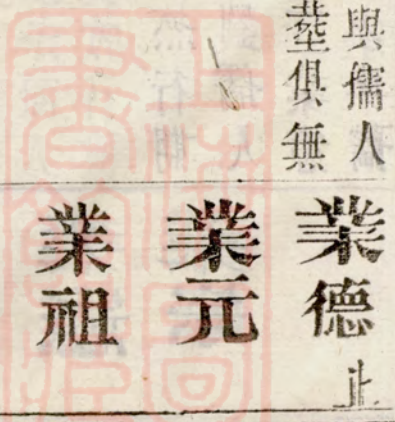 與儒人
塟俱無
業德止
業元
業祖